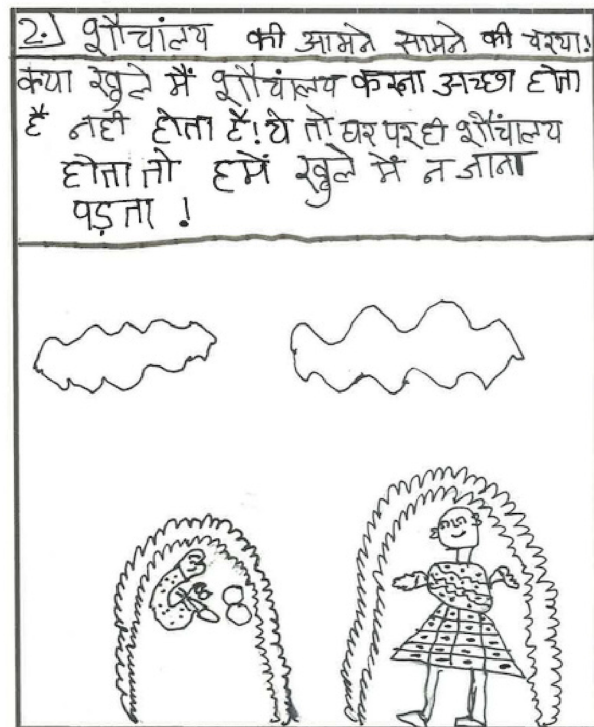 2.) शौचांलय की आमने सामने की चरया!
क्या खुले मैं शौचांलय करना अच्छा होता
है नहीं होता है! ये तो घर पर ही शौचांलय
होता तो हमें खुले में न जाना
पड़ता !